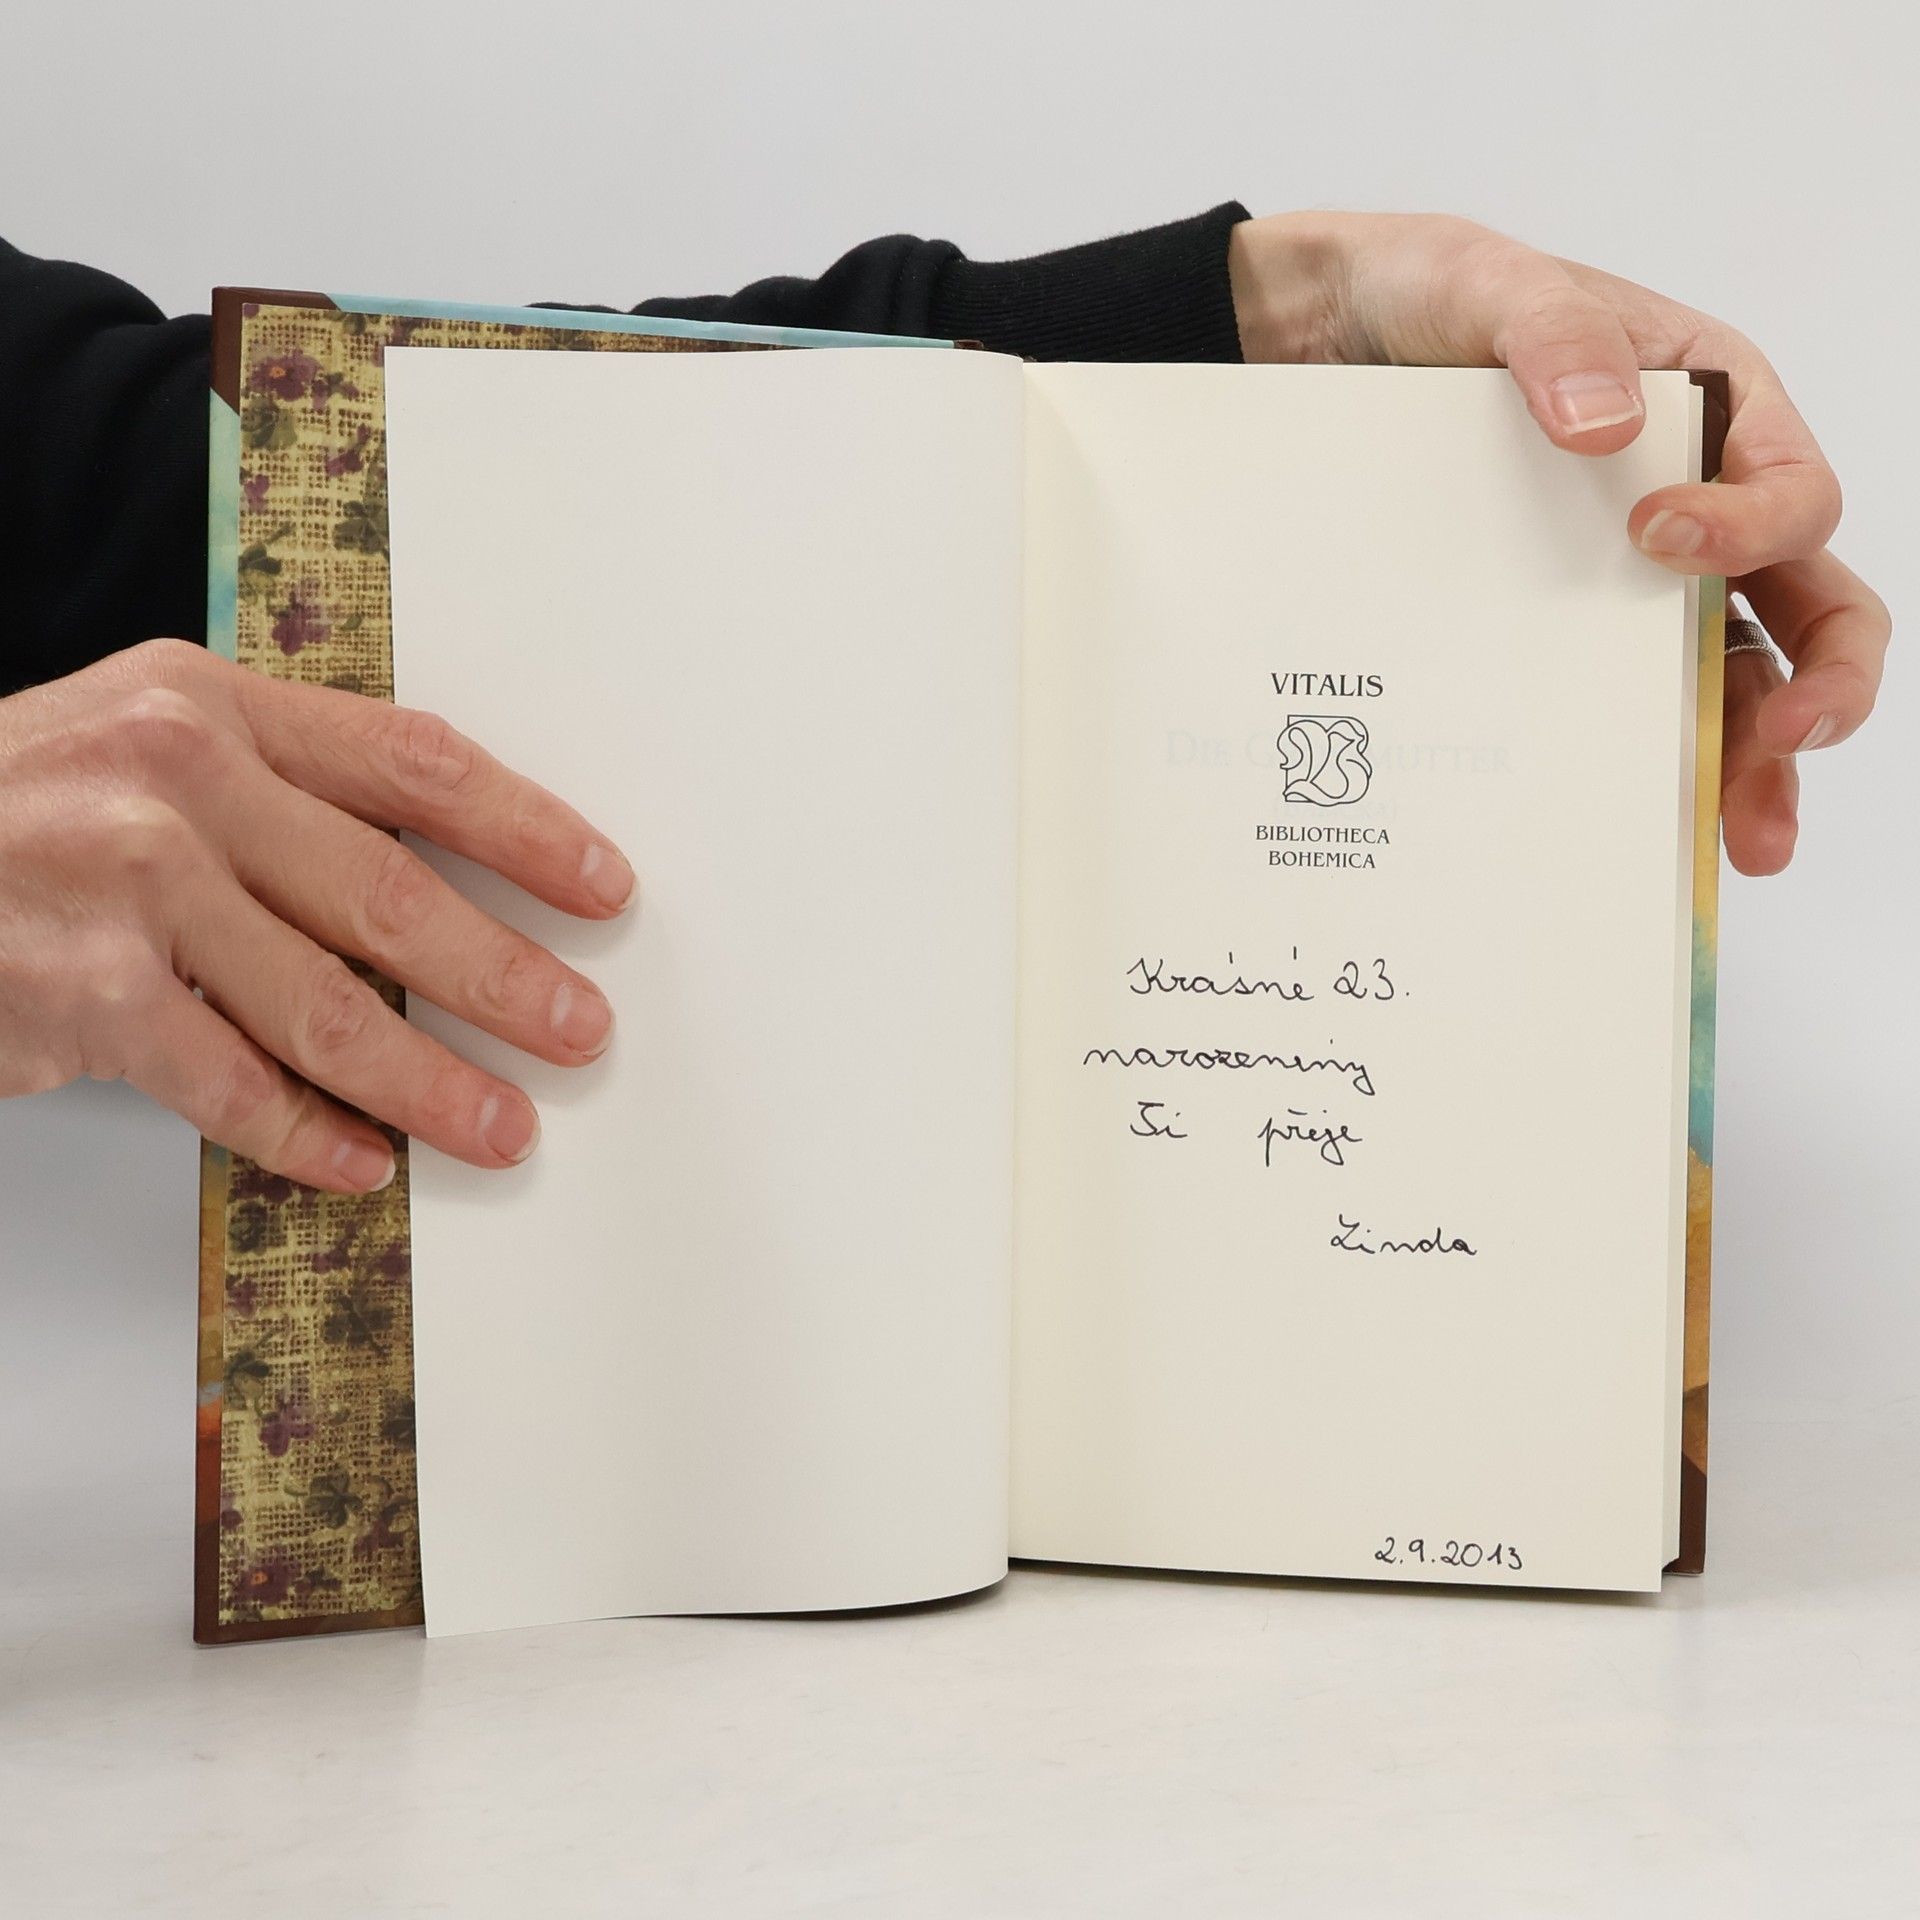 VITALIS
DIE GROSSMUTTER
BIBLIOTHECA
BOHEMICA
Krásné 23.
narozeniny
Ti přeje
Linda
2.9.2013